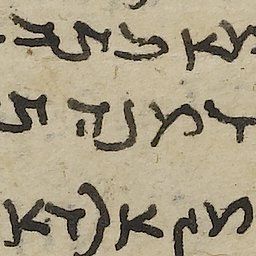 מא כתב
דמנה ת
מן אלדא